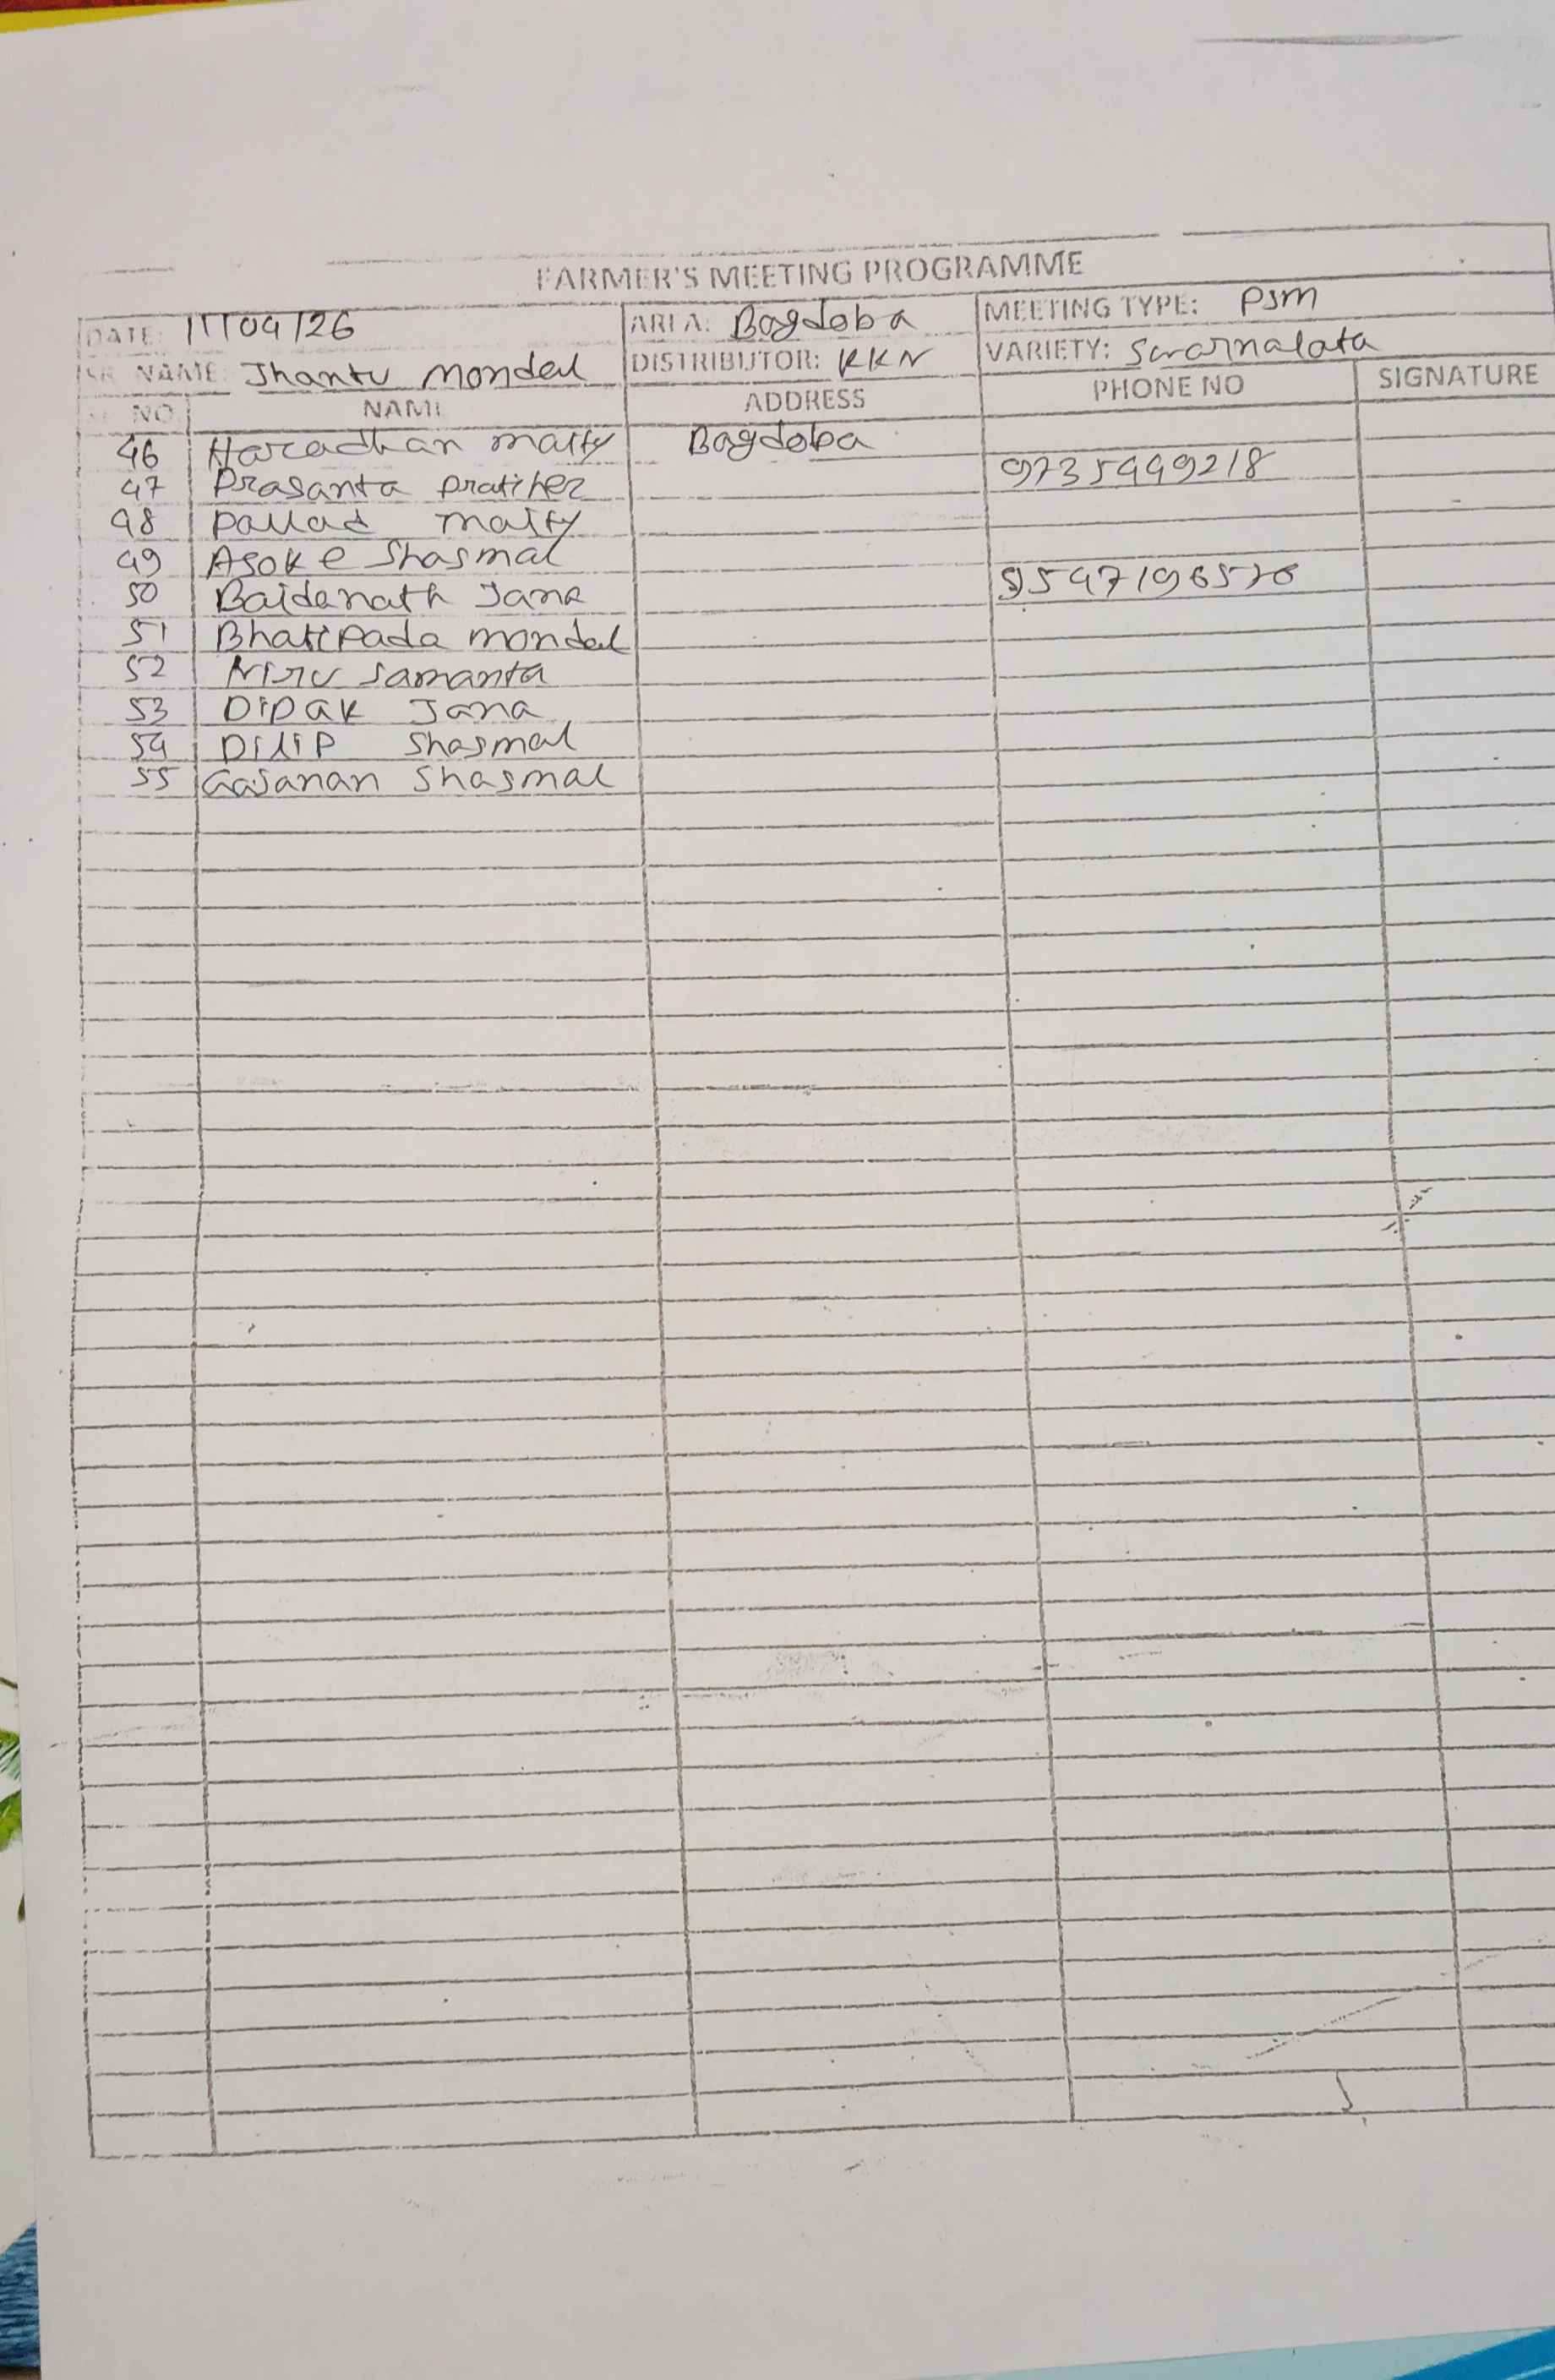 FARMER'S MEETING PROGRAMME
DATE: 11/04/26 AREA: Bogdoba MEETING TYPE: PSM
SR NAME: Jhantu Mondal DISTRIBUTOR: KKN VARIETY: Swarnalata
NO NAME ADDRESS PHONE NO SIGNATURE
46 Haradhan maity Bogdoba
47 Prasanta pratiher 9735449218
48 maity
49 Asoke Shasmal
50 Baidanath Jana
51 mondal
52 Samanta
53 Dipak Jana
54 Dilip Shasmal
55 Gajanan Shasmal